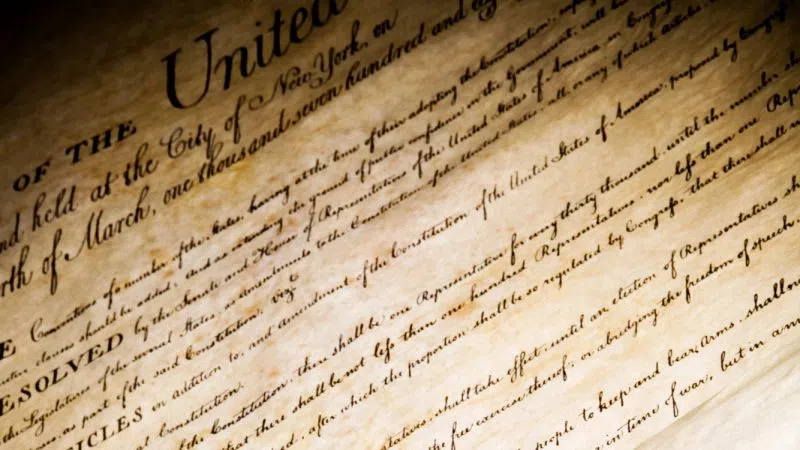 United
OF THE
nd held at the City of New York, on
rth of March, one thousand seven hundred and
E Conventions of a number of the States, having at the time of their adopting the Constitution,
clauses should be added: And as extending the ground of public confidence in the Government, will
ESOLVED by the Senate and House of Representatives of the United States of America, in Congress
the Legislatures of the several States, as amendments to the Constitution of the United States, all, or any of which Articles,
as part of the said Constitution; viz.
ICLES in addition to, and amendment of the Constitution of the United States of America, proposed by Congress
Constitution.
the Constitution, there shall be one Representative for thirty thousand, until the number sha
that there shall be not less than one hundred Representatives, nor less than one Repr
after which the proportion shall be so regulated by Congress, that there shall n
tatives, shall take effect, until an election of Representatives sh
the free exercise thereof; or abridging the freedom of speech,
people to keep and bear Arms, shall no
in time of war, but in a m